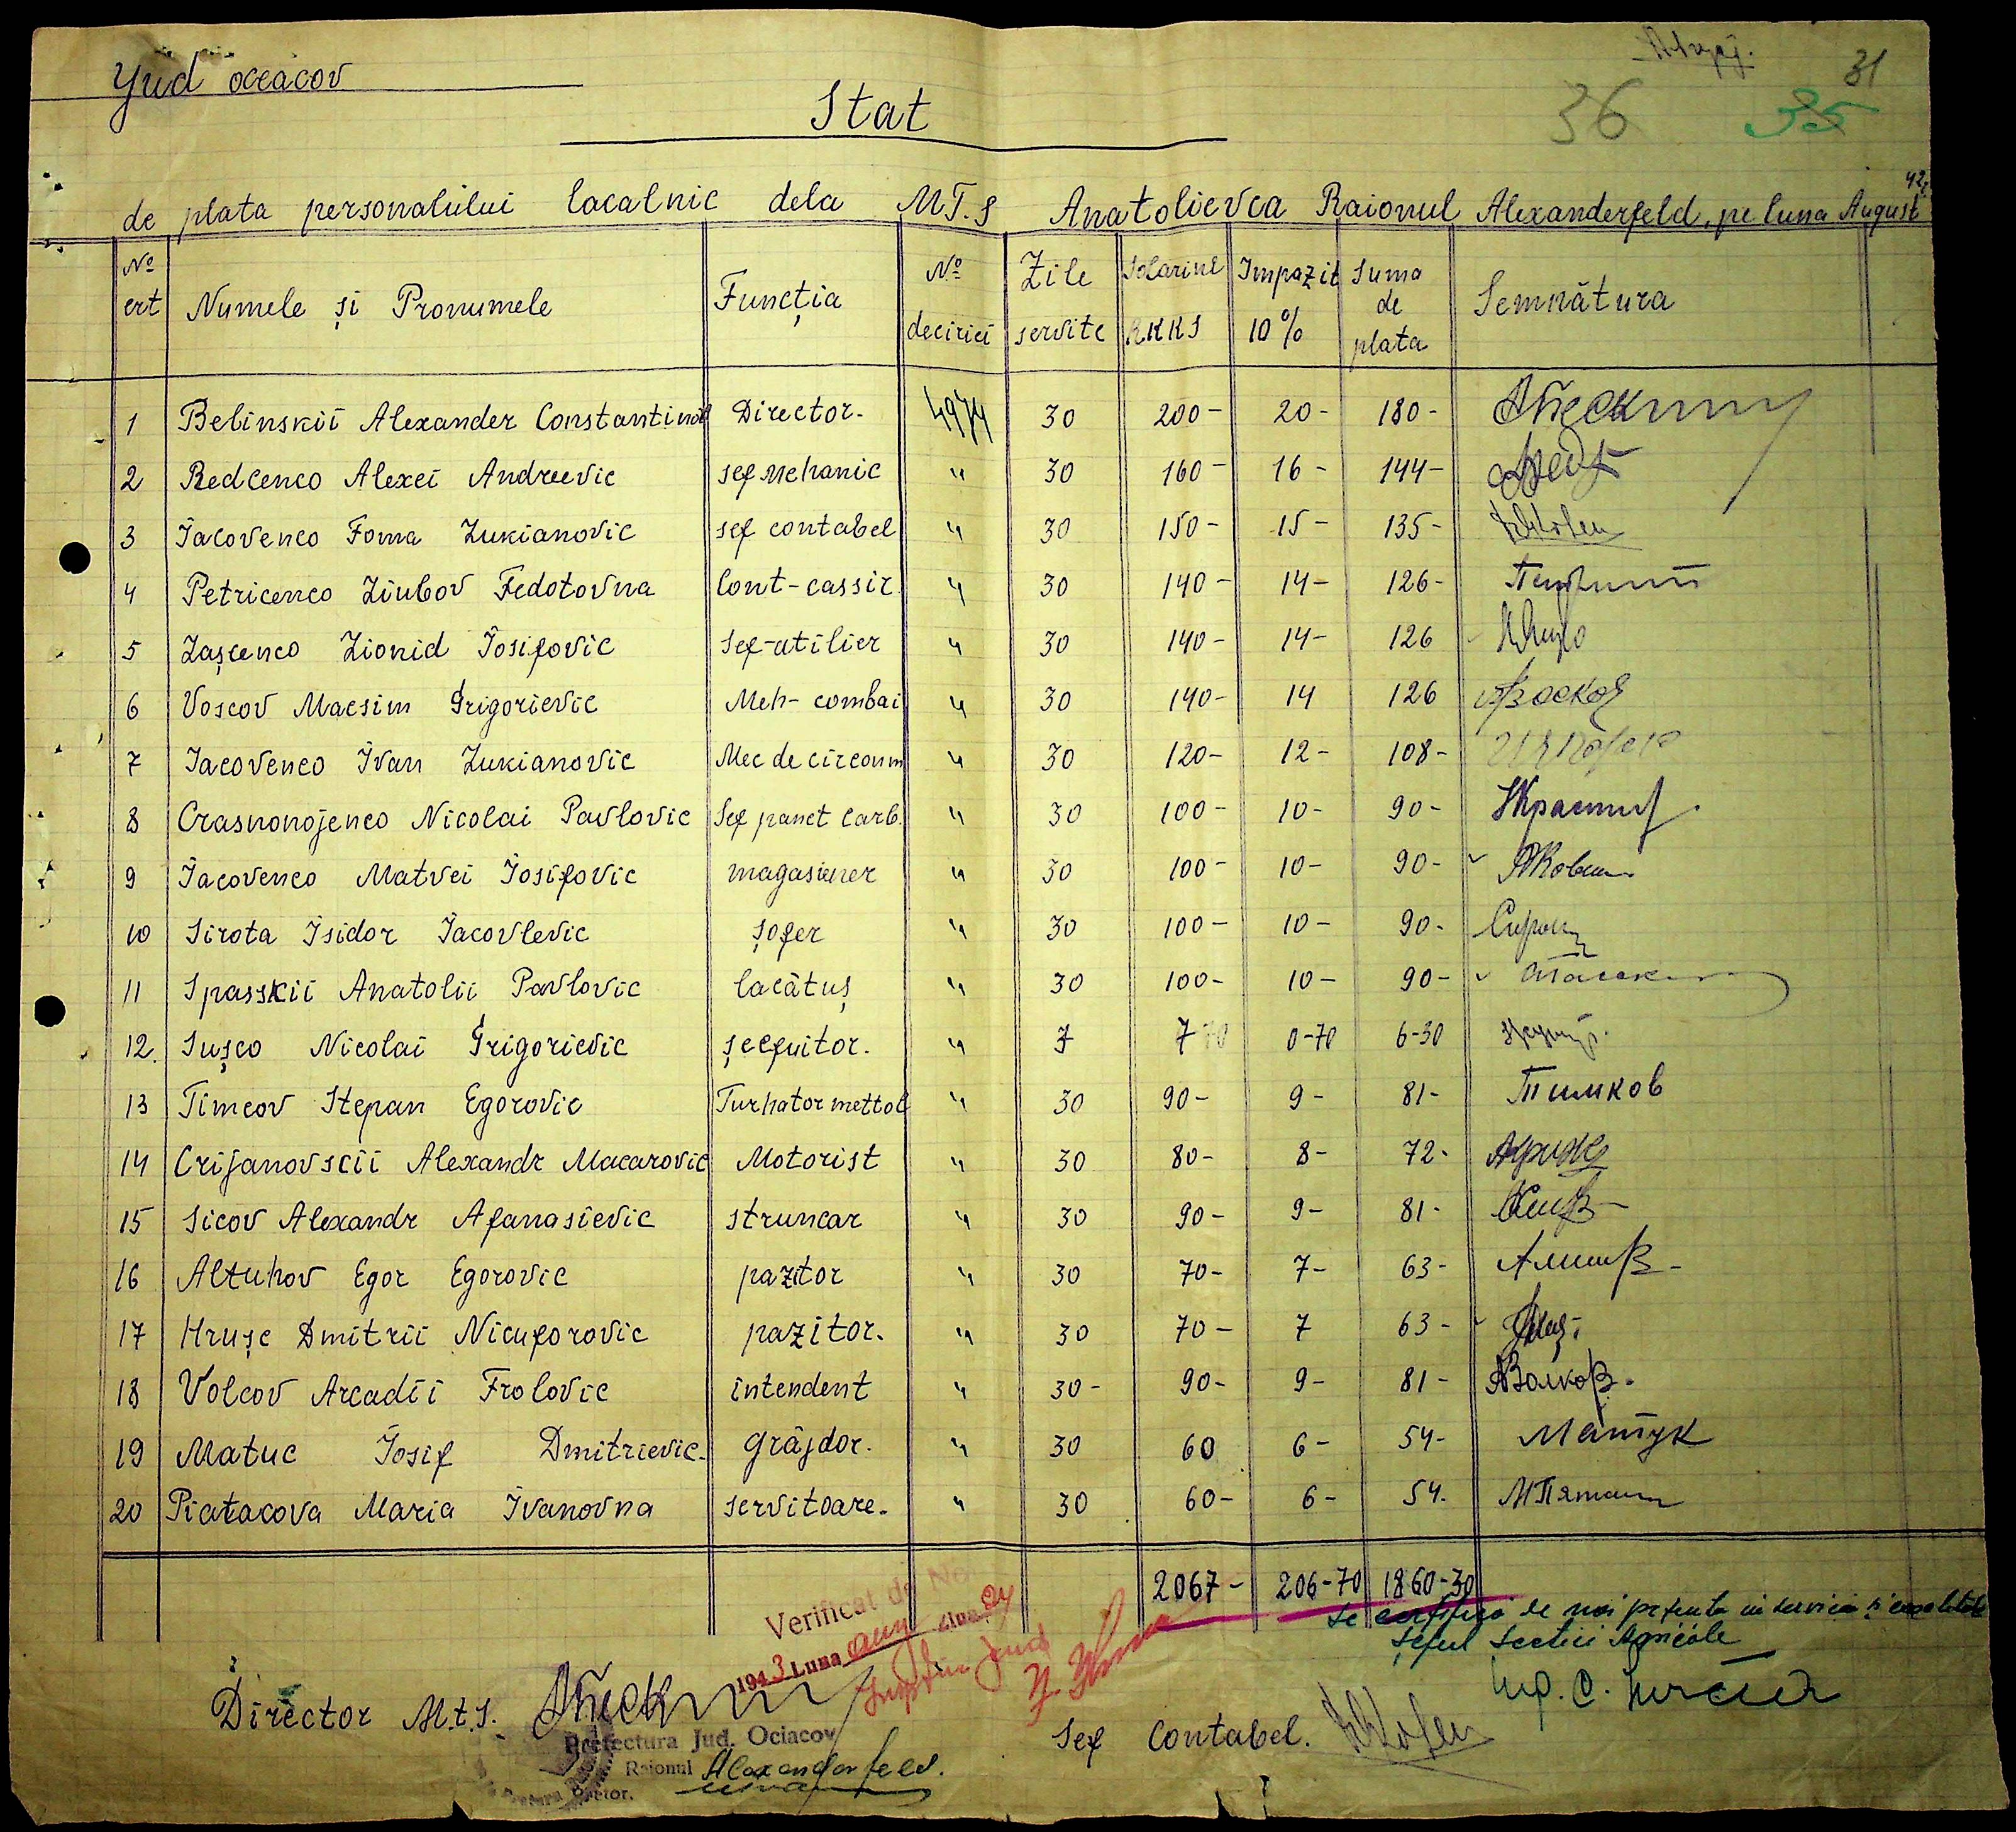 Jud oceacov
31
36 35
Stat
de plata personalului localnic dela M.T.S Anatolievca Raionul Alexanderfeld, pe luna August 42
№ crt Numele și Pronumele Funcția № decirici Zile servite Solariul RKKS Impazit 10% Suma de plata Semnătura
1 Belinskii Alexander Constantinov Director. 4974 30 200- 20- 180-
2 Redcenco Alexei Andreevic sef mehanic " 30 160- 16- 144-
3 Iacovenco Foma Lukianovic sef contabel " 30 150- 15- 135-
4 Petricenco Liubov Fedotovna Cont-cassir " 30 140- 14- 126-
5 Lașcenco Lionid Iosifovic Sef-atilier " 30 140- 14- 126
6 Voscov Macsim Grigorievic Meh- combai " 30 140- 14 126 Восков
7 Iacovenco Ivan Lukianovic Mec de circoum " 30 120- 12- 108-
8 Crasnonojenco Nicolai Pavlovic Sef panct carb. " 30 100- 10- 90-
9 Iacovenco Matvei Iosifovic magasiener " 30 100- 10- 90-
10 Sirota Isidor Iacovlevic șofer " 30 100- 10- 90-
11 Spasskii Anatolii Pavlovic lacătuș " 30 100- 10- 90-
12. Sușco Nicolai Grigorievic șlefuitor. " 7 7 70 0-70 6-30
13 Timcov Stepan Egorovic Turnator mettol " 30 90- 9- 81- Тимков
14 Crijanovscii Alexandr Macarovic Motorist " 30 80- 8- 72-
15 Sicov Alexandr Afanasievic struncar " 30 90- 9- 81-
16 Altuhov Egor Egorovic pazitor " 30 70- 7- 63-
17 Hrușc Dmitrii Nicuforovic pazitor. " 30 70- 7 63-
18 Volcov Arcadii Frolovic intendent " 30- 90- 9- 81- АВолков.
19 Matuc Iosif Dmitrievic. grăjdor. " 30 60 6- 54- Матук
20 Piatacova Maria Ivanovna servitoare. " 30 60- 6- 54.
2067- 206-70 1860-30
Verificat de Noi
1943 Luna aug Ziua 24
Se certifică de noi
șeful Sectiei Agricole
Ing. C.
Director M.t.S.
Sef Contabel.
Prefectura Jud. Ociacov
Raionul Alexanderfeld.
Pretor.